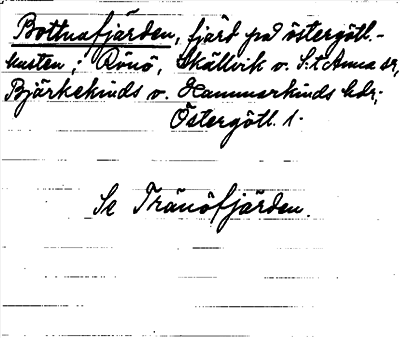 Bottnafjärden, fjärd på östergötl.-
kusten; Rönö, Skällvik o. S:t Anna sr,
Björkekinds o. Hammarkinds hdr;
Östergötl. l.
Se Tränöfjärden.